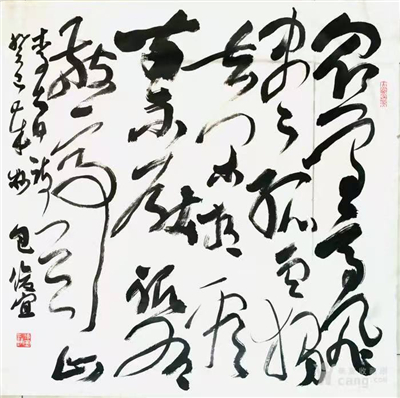 众鸟高飞
尽孤云独
去闲相看
两不厌只有
敬亭山
李太白诗
癸巳 包俊宜
cang.com